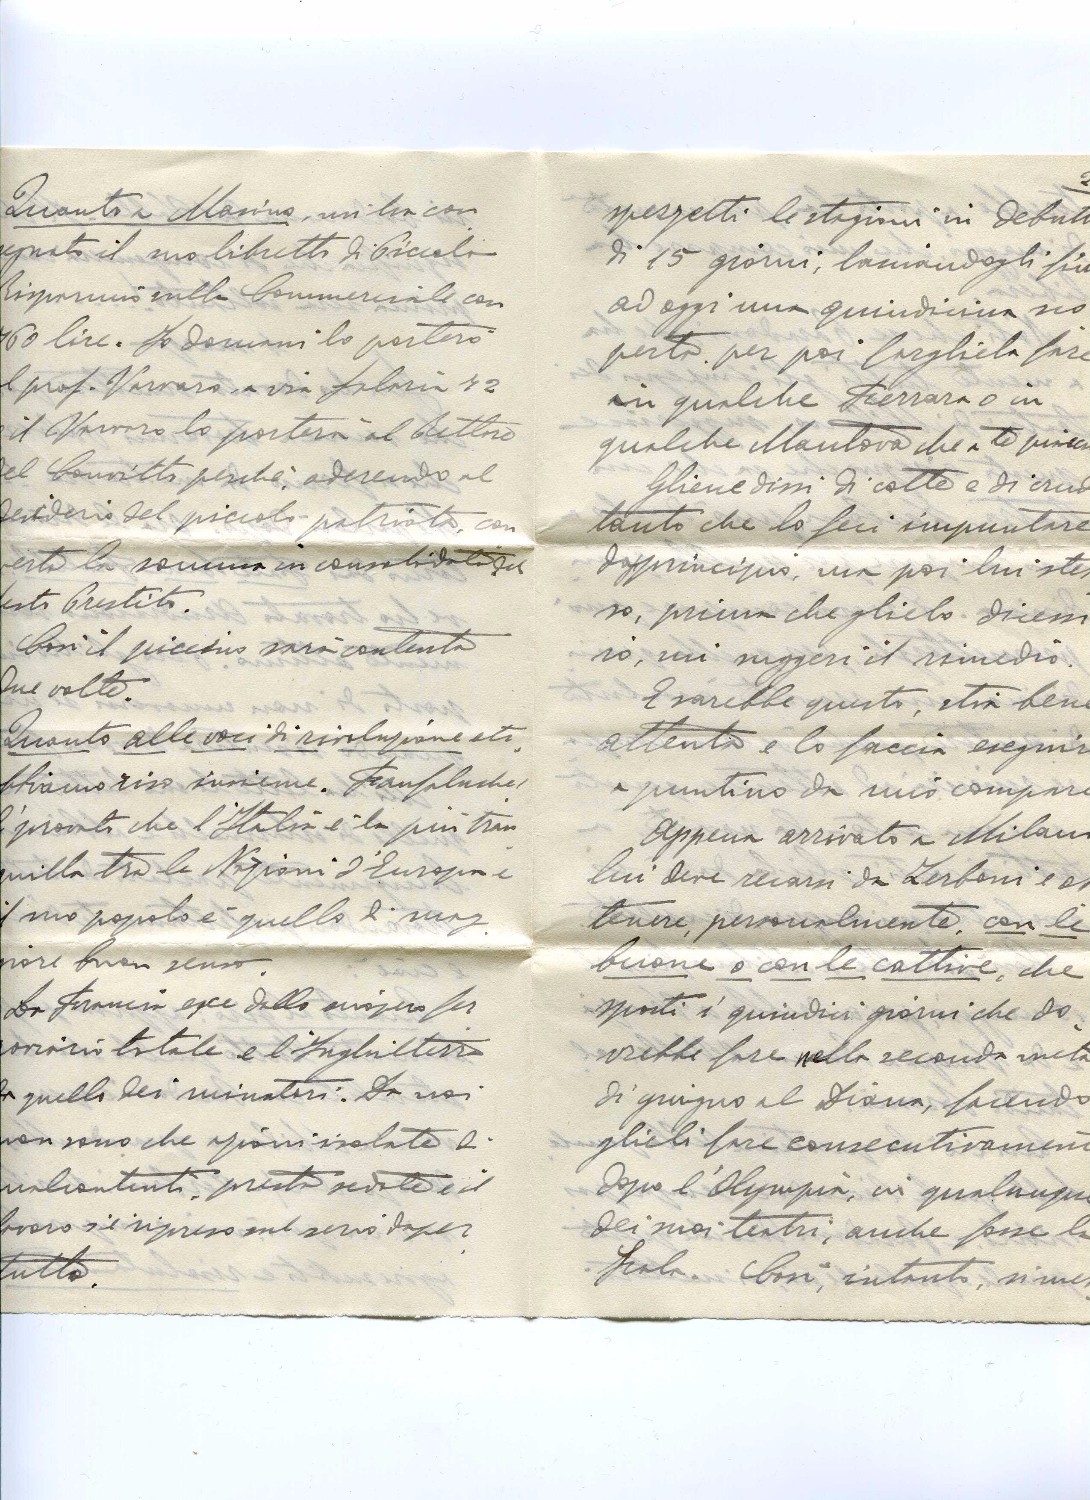 Quanto a Marino, mi ha con
segnato il suo libretto di Piccolo
Risparmio sulla Commerciale con
760 lire. Io domani lo porterò
al prof. Varvaro a via Salaria 42
e il Varvaro lo porterà al Rettore
del Convitto perché, aderendo al
desiderio del piccolo patriota, con
verta la somma in consolidato del
Prestito.
Così il piccino sarà contento
due volte.
Quanto alle voci di rivoluzione etc,
abbiamo riso insieme.
È provato che l'Italia è la più tran
quilla tra le Nazioni d'Europa e
il suo popolo è quello di mag
giore buon senso.
La Francia esce dallo sciopero fer
roviario totale e l'Inghilterra
da quello dei minatori. Da noi
non sono che azioni isolate di
malcontenti, presto sedate e il
lavoro si è ripreso sul serio daper
tutto.
2
spezzetti le stagioni in debutti
di 15 giorni, lasciandogli fin
ad oggi una quindicina sco
perta, per poi fargliela fare
in qualche Ferrara o in
qualche Mantova che a te piace
Gliene dissi di cotte e di crude
tanto che lo feci impuntare
dapprincipio, ma poi lui stes
so, prima che glielo dicessi
io, mi suggerì il rimedio.
E sarebbe questo, stia bene
attento e lo faccia eseguire
a puntino da mio compare
Appena arrivato a Milano
lui deve recarsi da Zerboni e ot
tenere, personalmente, con le
buone o con le cattive, che
sposti i quindici giorni che do
vrebbe fare nella seconda metà
di giugno al Diana, facendo
glieli fare consecutivamente
dopo l'Olympia, in qualunque
dei suoi teatri, anche fosse la
Scala. Così, intanto, si met